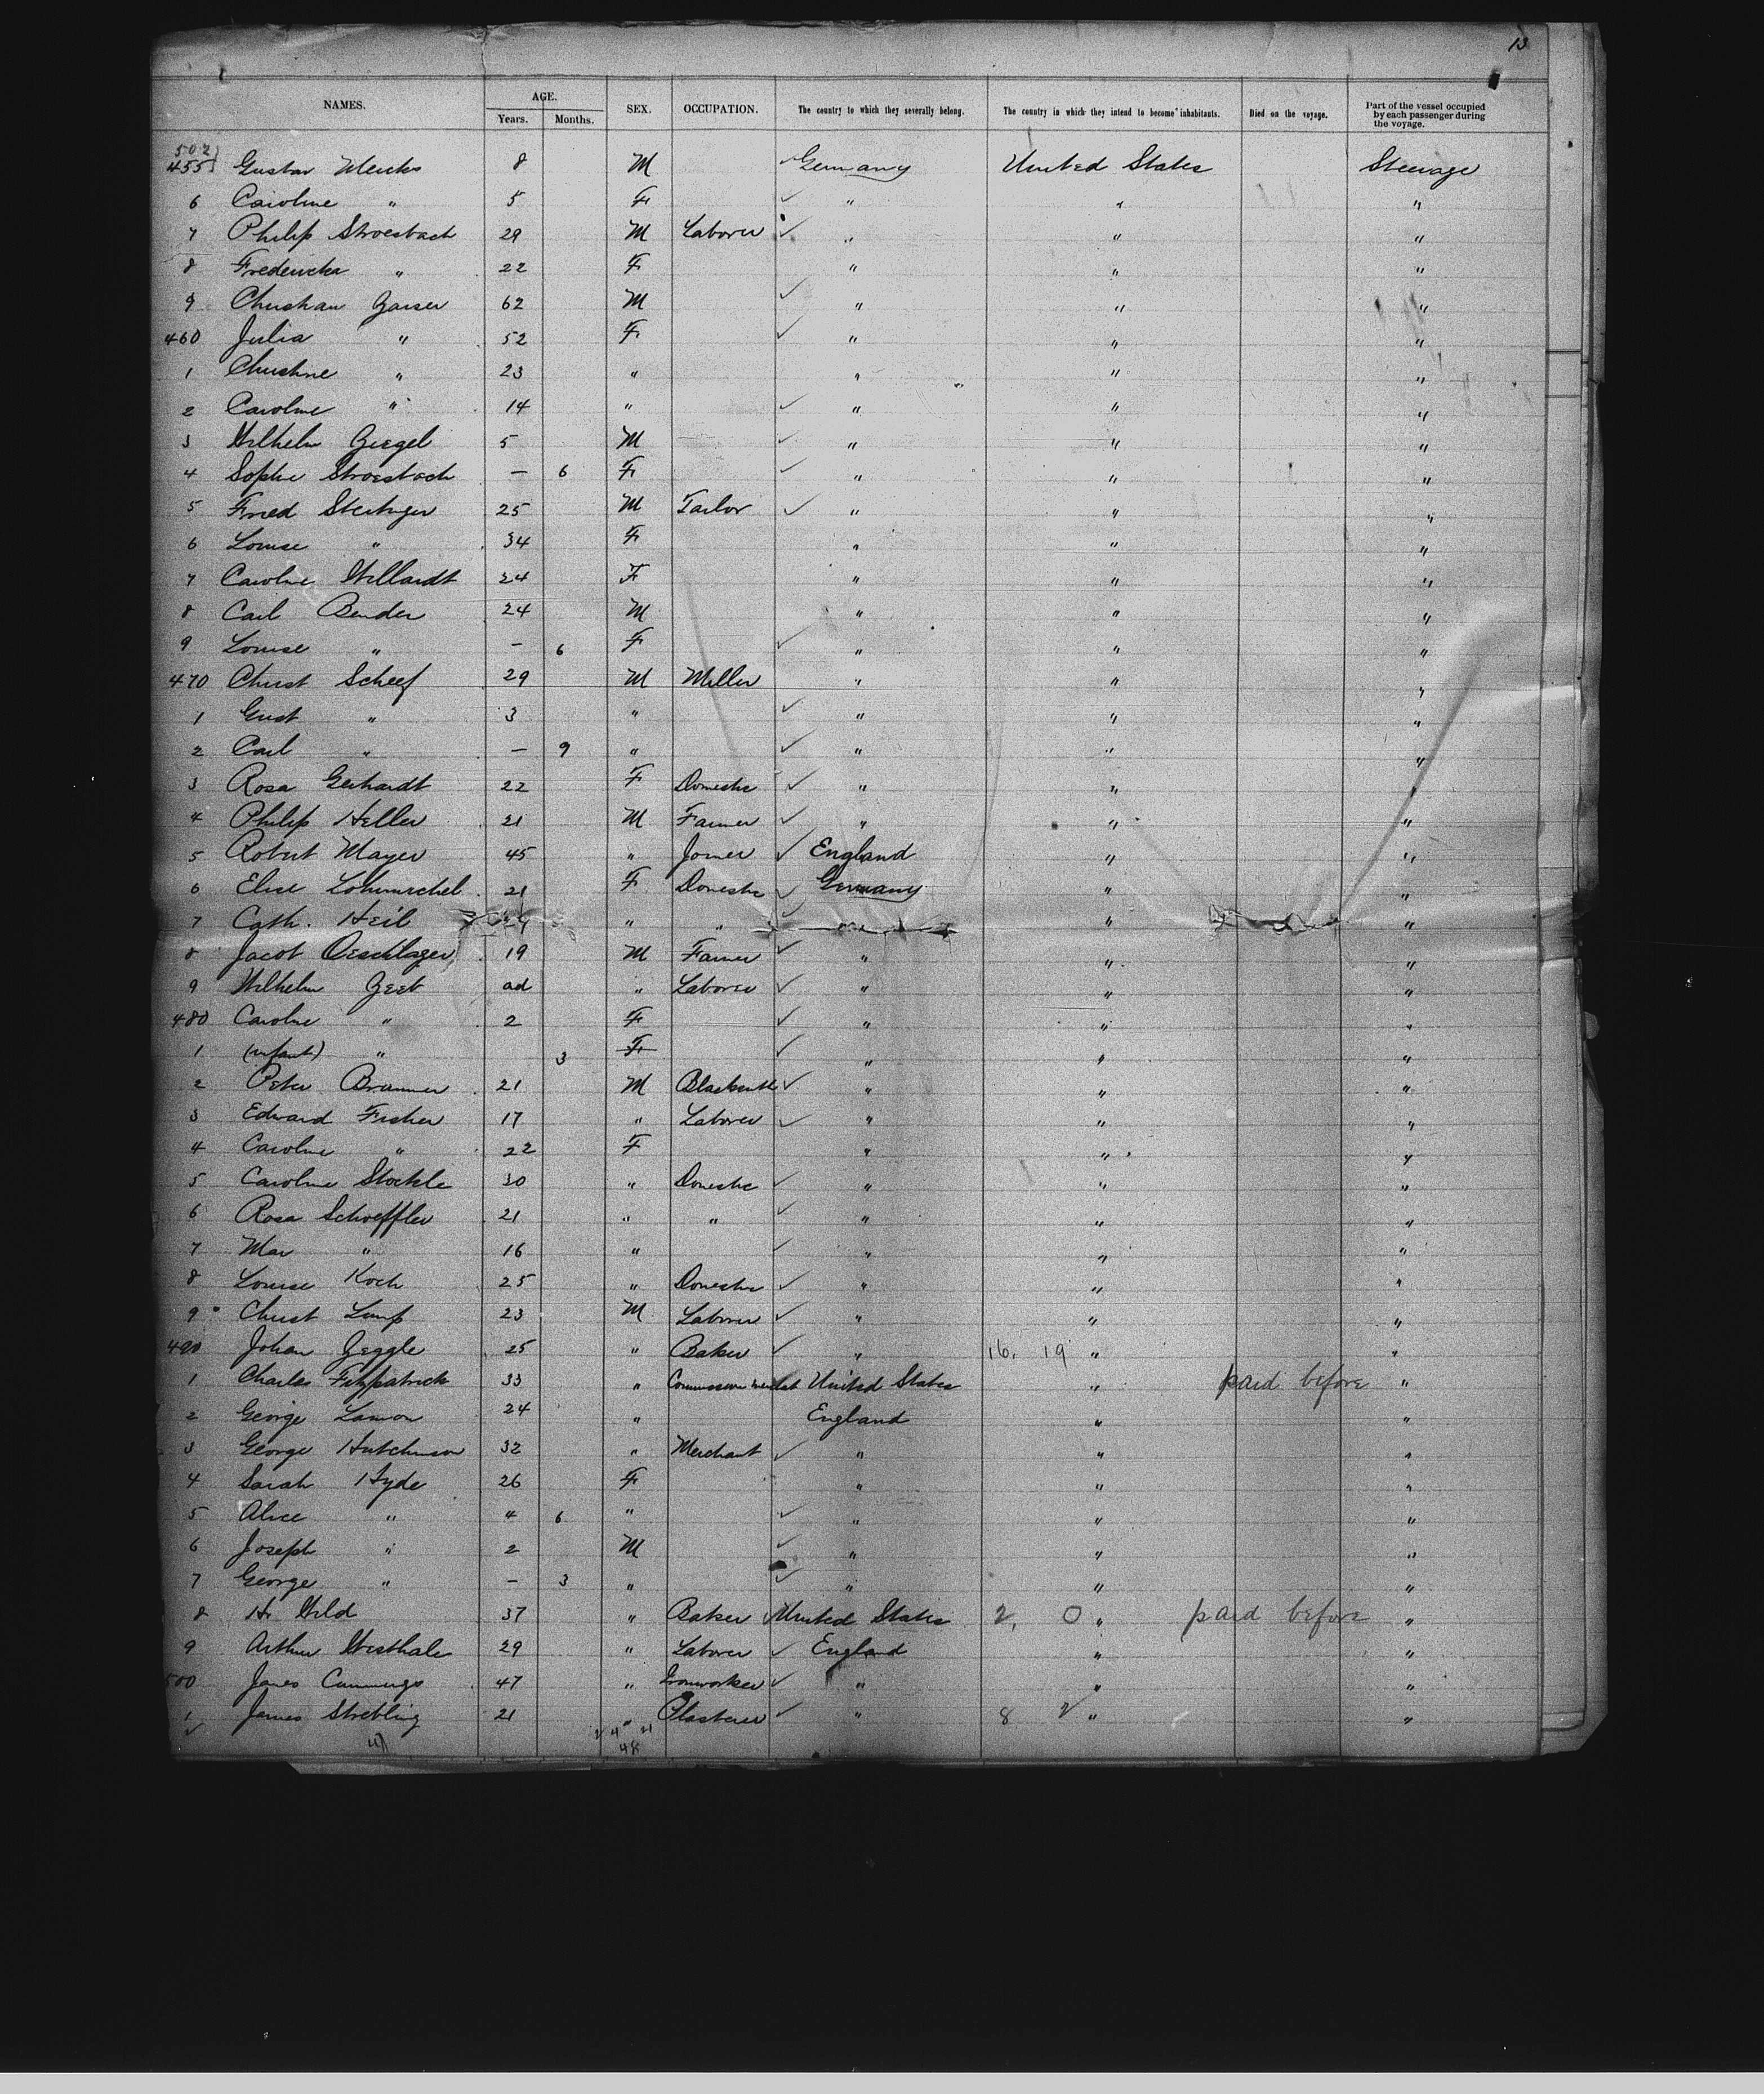 13
NAMES. AGE. SEX. OCCUPATION. The country to which they severally belong. The country in which they intend to become inhabitants. Died on the voyage. Part of the vessel occupied by each passenger during the voyage.
Years. Months.
502
455 Gustav 8 M Germany United States Steerage
6 Caroline " 5 F " " "
7 Philip Stroesbach 29 M Laborer " " "
8 Fredericka " 22 F " " "
9 Christian Gaiser 62 M " " "
460 Julia " 52 F " " "
1 Christine " 23 " " " "
2 Caroline " 14 " " " "
3 Wilhelm Giegel 5 M " " "
4 Sophie Stroesbach — 6 F " " "
5 Fried 25 M Tailor " " "
6 Louise " 34 F " " "
7 Caroline Willardt 24 F " " "
8 Carl Bender 24 M " " "
9 Louise " — 6 F " " "
470 Christ Scheef 29 M Miller " " "
1 Gust " 3 " " " "
2 Carl " — 9 " " " "
3 Rosa Gerhardt 22 F Domestic " " "
4 Philip Heller 21 M Farmer " " "
5 Robert Mayer 45 " Joiner England " "
6 Elise 21 F Domestic Germany " "
7 Cath. Heil " " " " "
8 Jacob Oeschlager 19 M Farmer " " "
9 Wilhelm Geeb ad " Laborer " " "
480 Caroline " 2 F " " "
1 (infant) " 3 F " " "
2 Peter Brunner 21 M Blacksmith " " "
3 Edward Fischer 17 " Laborer " " "
4 Caroline " 22 F " " "
5 Caroline Stockle 30 " Domestic " " "
6 Rosa Schoeffler 21 " " " " "
7 Mar " 16 " " " "
8 Louise Koch 25 " Domestic " " "
9 Christ Lump 23 M Laborer " " "
490 Johan Geggle 25 " Baker " 16. 19 " "
1 Charles Fitzpatrick 33 " Commission Merchat United States " paid before "
2 George Lamon 24 " England " "
3 George Hutchinson 32 " Merchant " " "
4 Sarah Hyde 26 F " " "
5 Alice " " 6 " " " "
6 Joseph " 2 M " " "
7 George " — 3 " " " "
8 H. Wild 37 " Baker United States 2, 0 " paid before "
9 Arthur Westhale 29 " Laborer England " "
500 James Cummings 47 " Ironworker " " "
1 James Strebling 21 " Plasterer " 8 2 " "